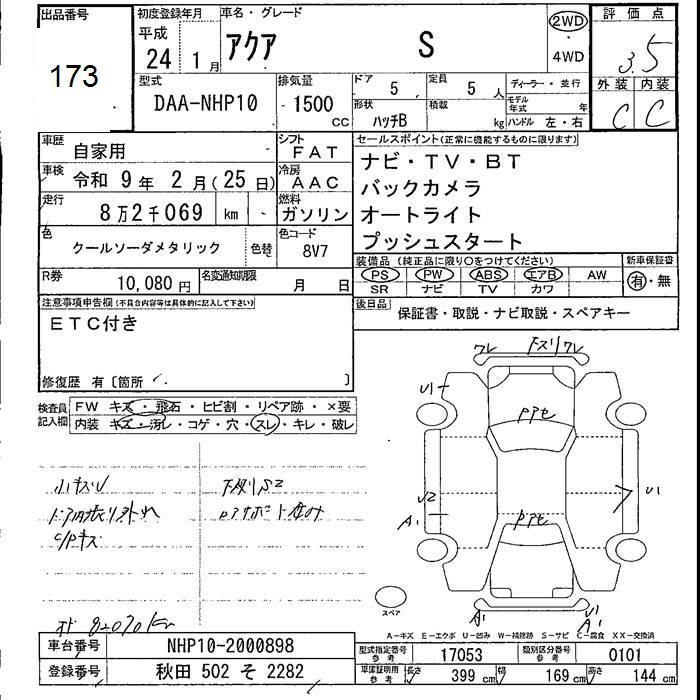 出品番号
173
初度登録年月
平成
24 1月
車名・グレード
アクア S
2WD
4WD
評価点
3.5
外装 内装
C C
型式
DAA-NHP10
排気量
1500
CC
ドア
5
定員
5 人
形状
ハッチB
積載
kg
ディーラー・並行
モデル年式 年
ハンドル 左・右
車歴
自家用
シフト
FAT
車検
令和 9年 2月(25日)
冷房
AAC
走行
8万2千069 km
燃料
ガソリン
色
クールソーダメタリック
色替
色コード
8V7
R券
10,080円
名変通知期限
月 日
セールスポイント(正常に機能するものに限ります)
ナビ・TV・BT
バックカメラ
オートライト
プッシュスタート
装備品(純正品に限り○をつけてください)
PS PW ABS エアB AW
SR ナビ TV カワ
新車保証書
有・無
後日品
保証書・取説・ナビ取説・スペアキー
注意事項申告欄(不具合内容等は具体的に記入して下さい)
ETC付き
修復歴 有[箇所 ]
検査員記入欄
FW キズ・飛石・ヒビ割・リペア跡・×要
内装 キズ・汚レ・コゲ・穴・スレ・キレ・破レ
小キズU
下廻りS2
ドア内張り外れ
C/Pキズ
82070km
ワレ 下スリワレ
U1
PPセ
U2
A1
U1
PPセ
スペア
A1
U1
A1
A-キズ E-エクボ U-凹み W-補修跡 S-サビ C-腐食 XX-交換済
車台番号
NHP10-2000898
登録番号
秋田 502 そ 2282
型式指定番号
参考
17053
類別区分番号
参考
0101
車庫証明用
参考
長さ
399 cm
幅
169 cm
高さ
144 cm